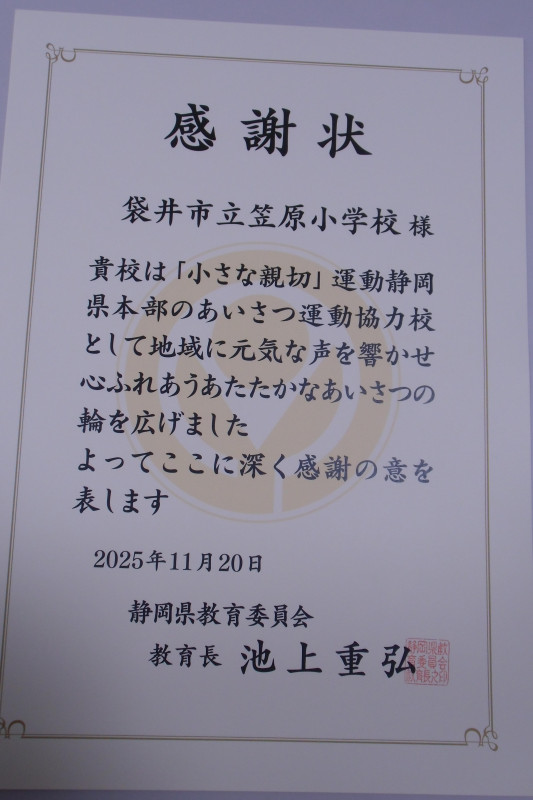 感謝状
袋井市立笠原小学校 様
貴校は「小さな親切」運動静岡
県本部のあいさつ運動協力校
として地域に元気な声を響かせ
心ふれあうあたたかなあいさつの
輪を広げました
よってここに深く感謝の意を
表します
2025年11月20日
静岡県教育委員会
教育長 池上重弘